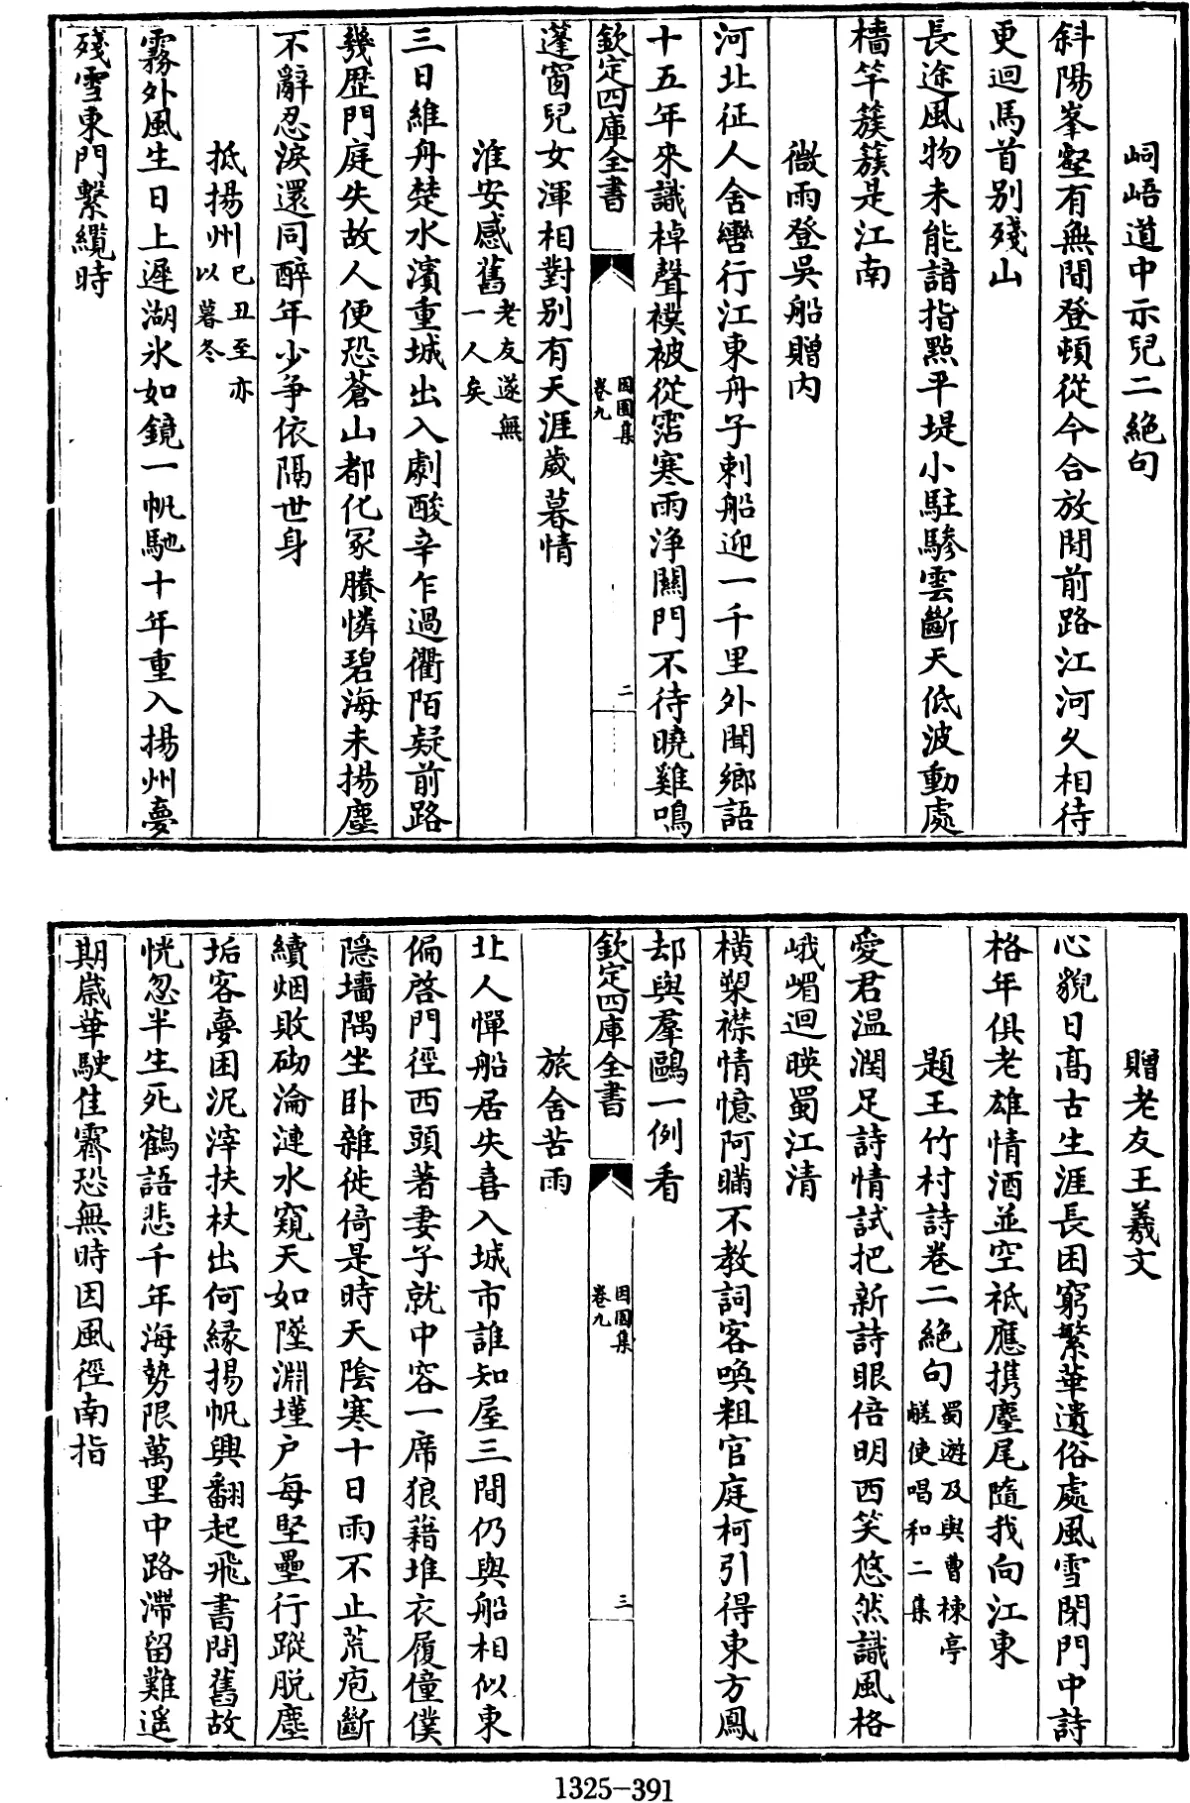 峒峿道中示兒二絶句
斜陽峯壑有無間登頓從今合放閒前路江河久相待
更迴馬首别殘山
長途風物未能諳指㸃平堤小駐驂雲斷天低波動處
檣竿簇簇是江南
微雨登吳船贈内
河北征人舍轡行江東舟子刺船迎一千里外聞鄉語
十五年來識棹聲襆被從霑寒雨淨關門不待曉雞鳴
欽定四庫全書
因園集
卷九
二
蓬窗兒女渾相對别有天涯歲暮情
淮安感舊老友遂無一人矣
三日維舟楚水濱重城出入劇酸辛乍過衢陌疑前路
幾歴門庭失故人便恐蒼山都化冢賸憐碧海未揚塵
不辭忍淚還同醉年少爭依隔世身
抵揚州己丑至亦以暮冬
霧外風生日上遲湖氷如鏡一帆馳十年重入揚州夢
殘雪東門繫纜時
贈老友王羲文
心貌日髙古生涯長困窮繁華遺俗處風雪閉門中詩
格年俱老雄情酒並空祗應携麈尾隨我向江東
題王竹村詩卷二絶句蜀遊及與曹楝亭鹺使唱和二集
愛君温潤足詩情試把新詩眼倍明西笑悠然識風格
峨嵋迴暎蜀江清
横槊襟情憶阿瞞不教詞客喚粗官庭柯引得東方鳳
却與羣鷗一例看
欽定四庫全書
因園集
卷九
三
旅舍苦雨
北人憚船居失喜入城市誰知屋三間仍與船相似東
偏啓門徑西頭著妻子就中容一席狼藉堆衣履僮僕
隱墻隅坐卧雜徙倚是時天隂寒十日雨不止荒庖斷
續烟敗砌淪漣水窺天如墜淵墐户每堅壘行蹤脱塵
垢客夢困泥滓扶杖出何縁揚帆興翻起飛書問舊故
恍忽半生死鶴語悲千年海勢限萬里中路滯留難遥
期歳華駛佳霽恐無時因風徑南指
1325-391